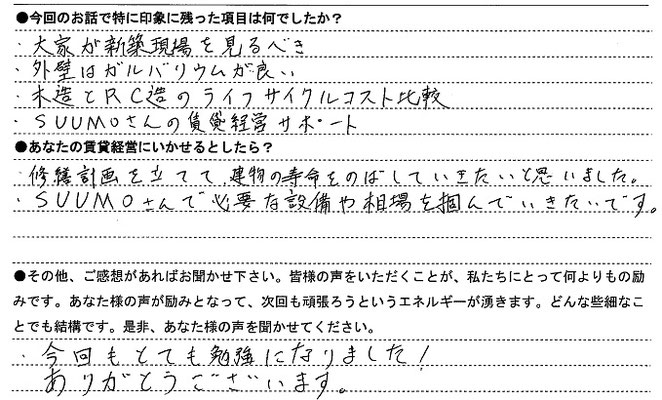 ●今回のお話で特に印象に残った項目は何でしたか？
・大家が新築現場を見るべき
・外壁はガルバリウムが良い
・木造とRC造のライフサイクルコスト比較
・SUUMOさんの賃貸経営サポート
●あなたの賃貸経営にいかせるとしたら？
・修繕計画を立てて、建物の寿命をのばしていきたいと思いました。
・SUUMOさんで必要な設備や相場を掴んでいきたいです。
●その他、ご感想があればお聞かせ下さい。皆様の声をいただくことが、私たちにとって何よりもの励
みです。あなた様の声が励みとなって、次回も頑張ろうというエネルギーが湧きます。どんな些細なこ
とでも結構です。是非、あなた様の声を聞かせてください。
・今回もとても勉強になりました！
ありがとうございます。